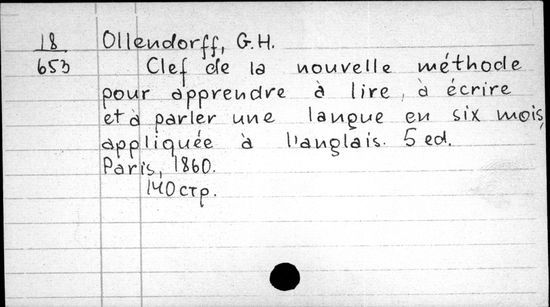 18 Ollendorff, G.H.
653 Clef de la nouvelle méthode
pour apprendre à lire, à écrire
et à parler une langue en six mois,
appliquée à l'anglais. 5 ed.
Paris, 1860.
140 стр.